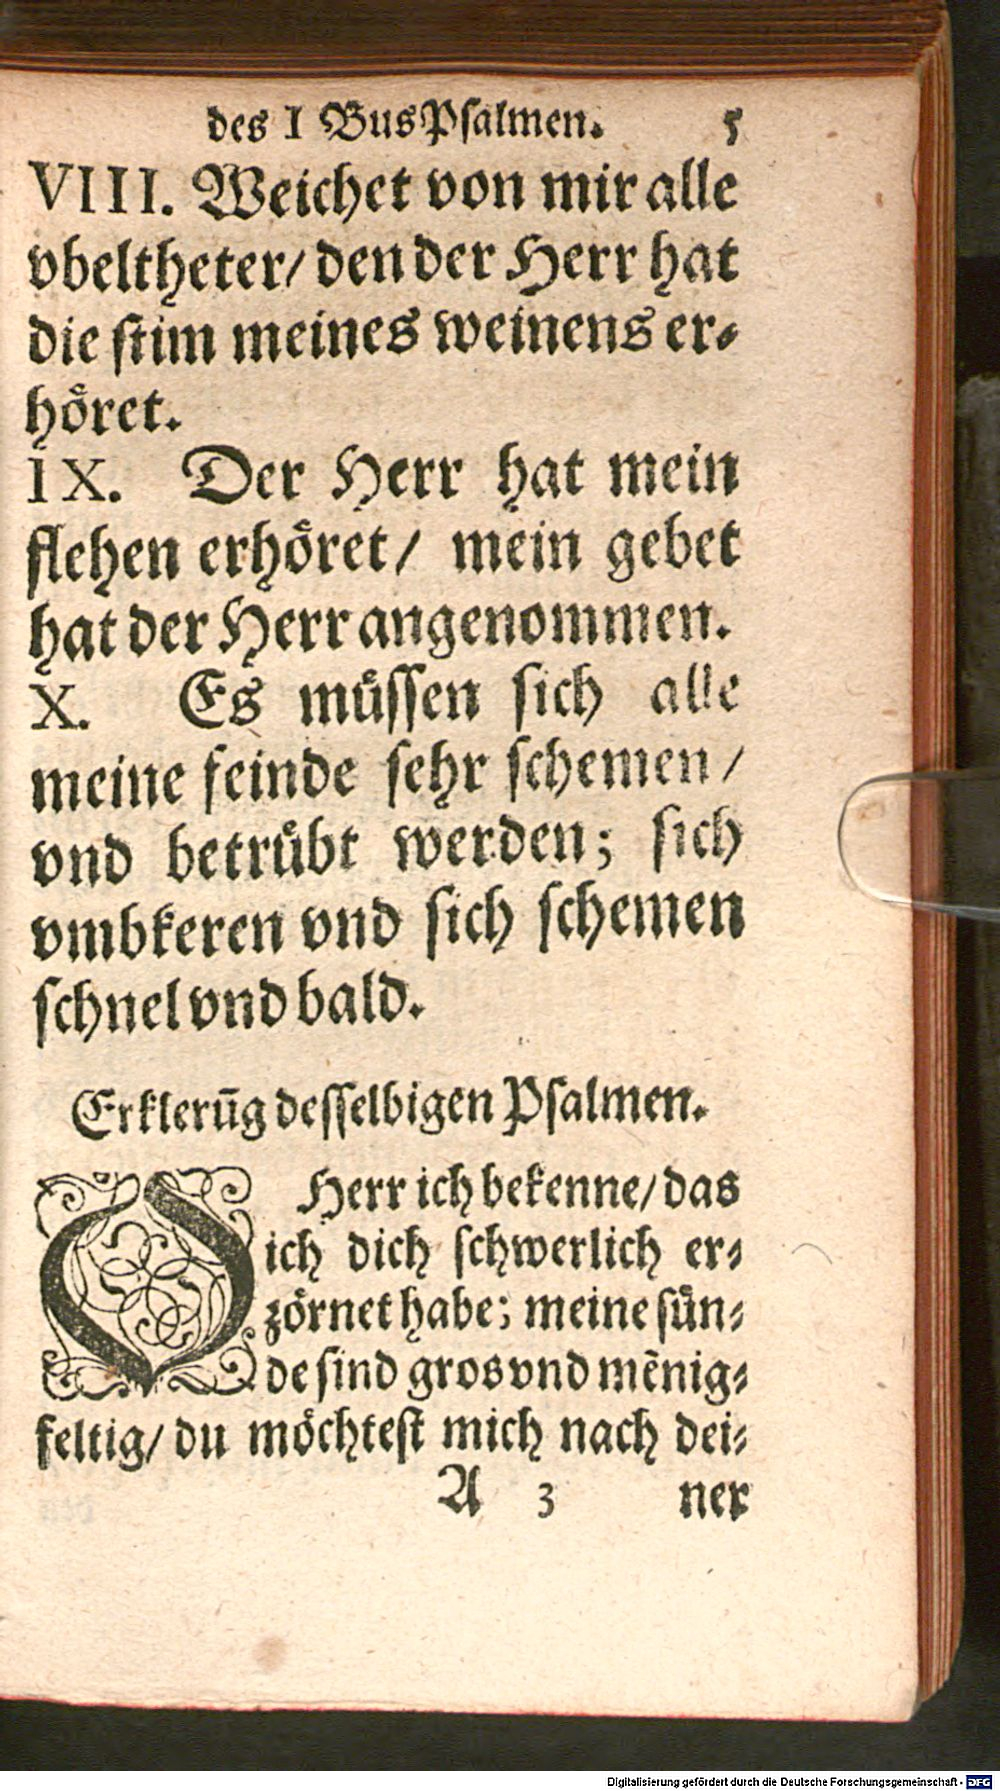 des I BusPſalmen. 5
VIII. Weichet von mir alle
vbeltheter/ den der Herr hat
die ſtim meines weinens er⸗
hoͤret.
IX. Der Herr hat mein
flehen erhoͤret/ mein gebet
hat der Herr angenommen.
X. Es muͤſſen ſich alle
meine feinde ſehr ſchemen/
vnd betruͤbt werden; ſich
vmbkeren vnd ſich ſchemen
ſchnel vnd bald.
Erklerūg deſſelbigen Pſalmen.
O Herr ich bekenne/ das
ich dich ſchwerlich er⸗
zoͤrnet habe; meine ſuͤn⸗
de ſind gros vnd mēnig⸗
feltig/ du moͤchteſt mich nach dei⸗
A 3 ner
Digitalisierung gefördert durch die Deutsche Forschungsgemeinschaft - DFG